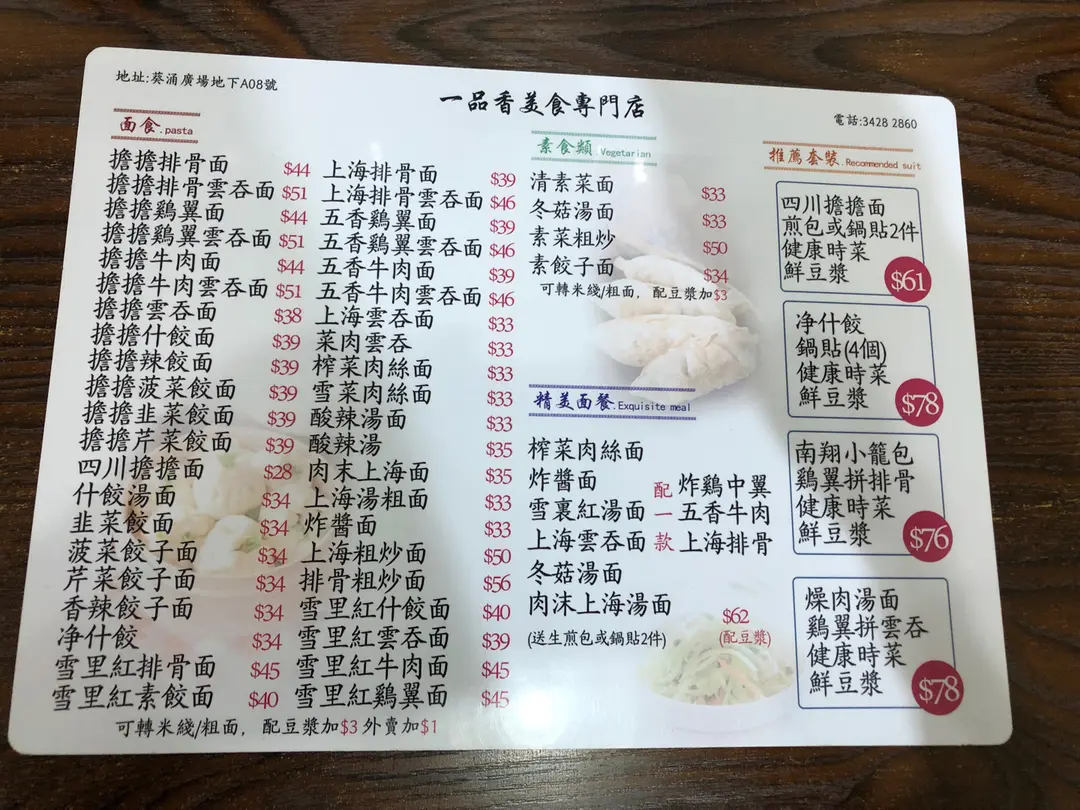 地址:葵涌廣場地下A08號
一品香美食專門店
電話:3428 2860
面食.pasta
擔擔排骨面 $44
擔擔排骨雲吞面 $51
擔擔鷄翼面 $44
擔擔鷄翼雲吞面 $51
擔擔牛肉面 $44
擔擔牛肉雲吞面 $51
擔擔雲吞面 $38
擔擔什餃面 $39
擔擔辣餃面 $39
擔擔菠菜餃面 $39
擔擔韭菜餃面 $39
擔擔芹菜餃面 $39
四川擔擔面 $28
什餃湯面 $34
韭菜餃面 $34
菠菜餃子面 $34
芹菜餃子面 $34
香辣餃子面 $34
净什餃 $34
雪里紅排骨面 $45
雪里紅素餃面 $40
上海排骨面 $39
上海排骨雲吞面 $46
五香鷄翼面 $39
五香鷄翼雲吞面 $46
五香牛肉面 $39
五香牛肉雲吞面 $46
上海雲吞面 $33
菜肉雲吞 $33
榨菜肉絲面 $33
雪菜肉絲面 $33
酸辣湯面 $33
酸辣湯 $35
肉末上海面 $35
上海湯粗面 $33
炸醬面 $33
上海粗炒面 $50
排骨粗炒面 $56
雪里紅什餃面 $40
雪里紅雲吞面 $39
雪里紅牛肉面 $45
雪里紅鷄翼面 $45
可轉米綫/粗面，配豆漿加$3 外賣加$1
素食類.Vegetarian
清素菜面 $33
冬菇湯面 $33
素菜粗炒 $50
素餃子面 $34
可轉米綫/粗面，配豆漿加$3
精美面餐.Exquisite meal
榨菜肉絲面
炸醬面
雪裏紅湯面
上海雲吞面
冬菇湯面
肉沫上海湯面
(送生煎包或鍋貼2件)
配一款
炸鷄中翼
五香牛肉
上海排骨
$62
(配豆漿)
推薦套裝.Recommended suit
四川擔擔面
煎包或鍋貼2件
健康時菜
鮮豆漿
$61
净什餃
鍋貼(4個)
健康時菜
鮮豆漿
$78
南翔小籠包
鷄翼拼排骨
健康時菜
鮮豆漿
$76
燥肉湯面
鷄翼拼雲吞
健康時菜
鮮豆漿
$78